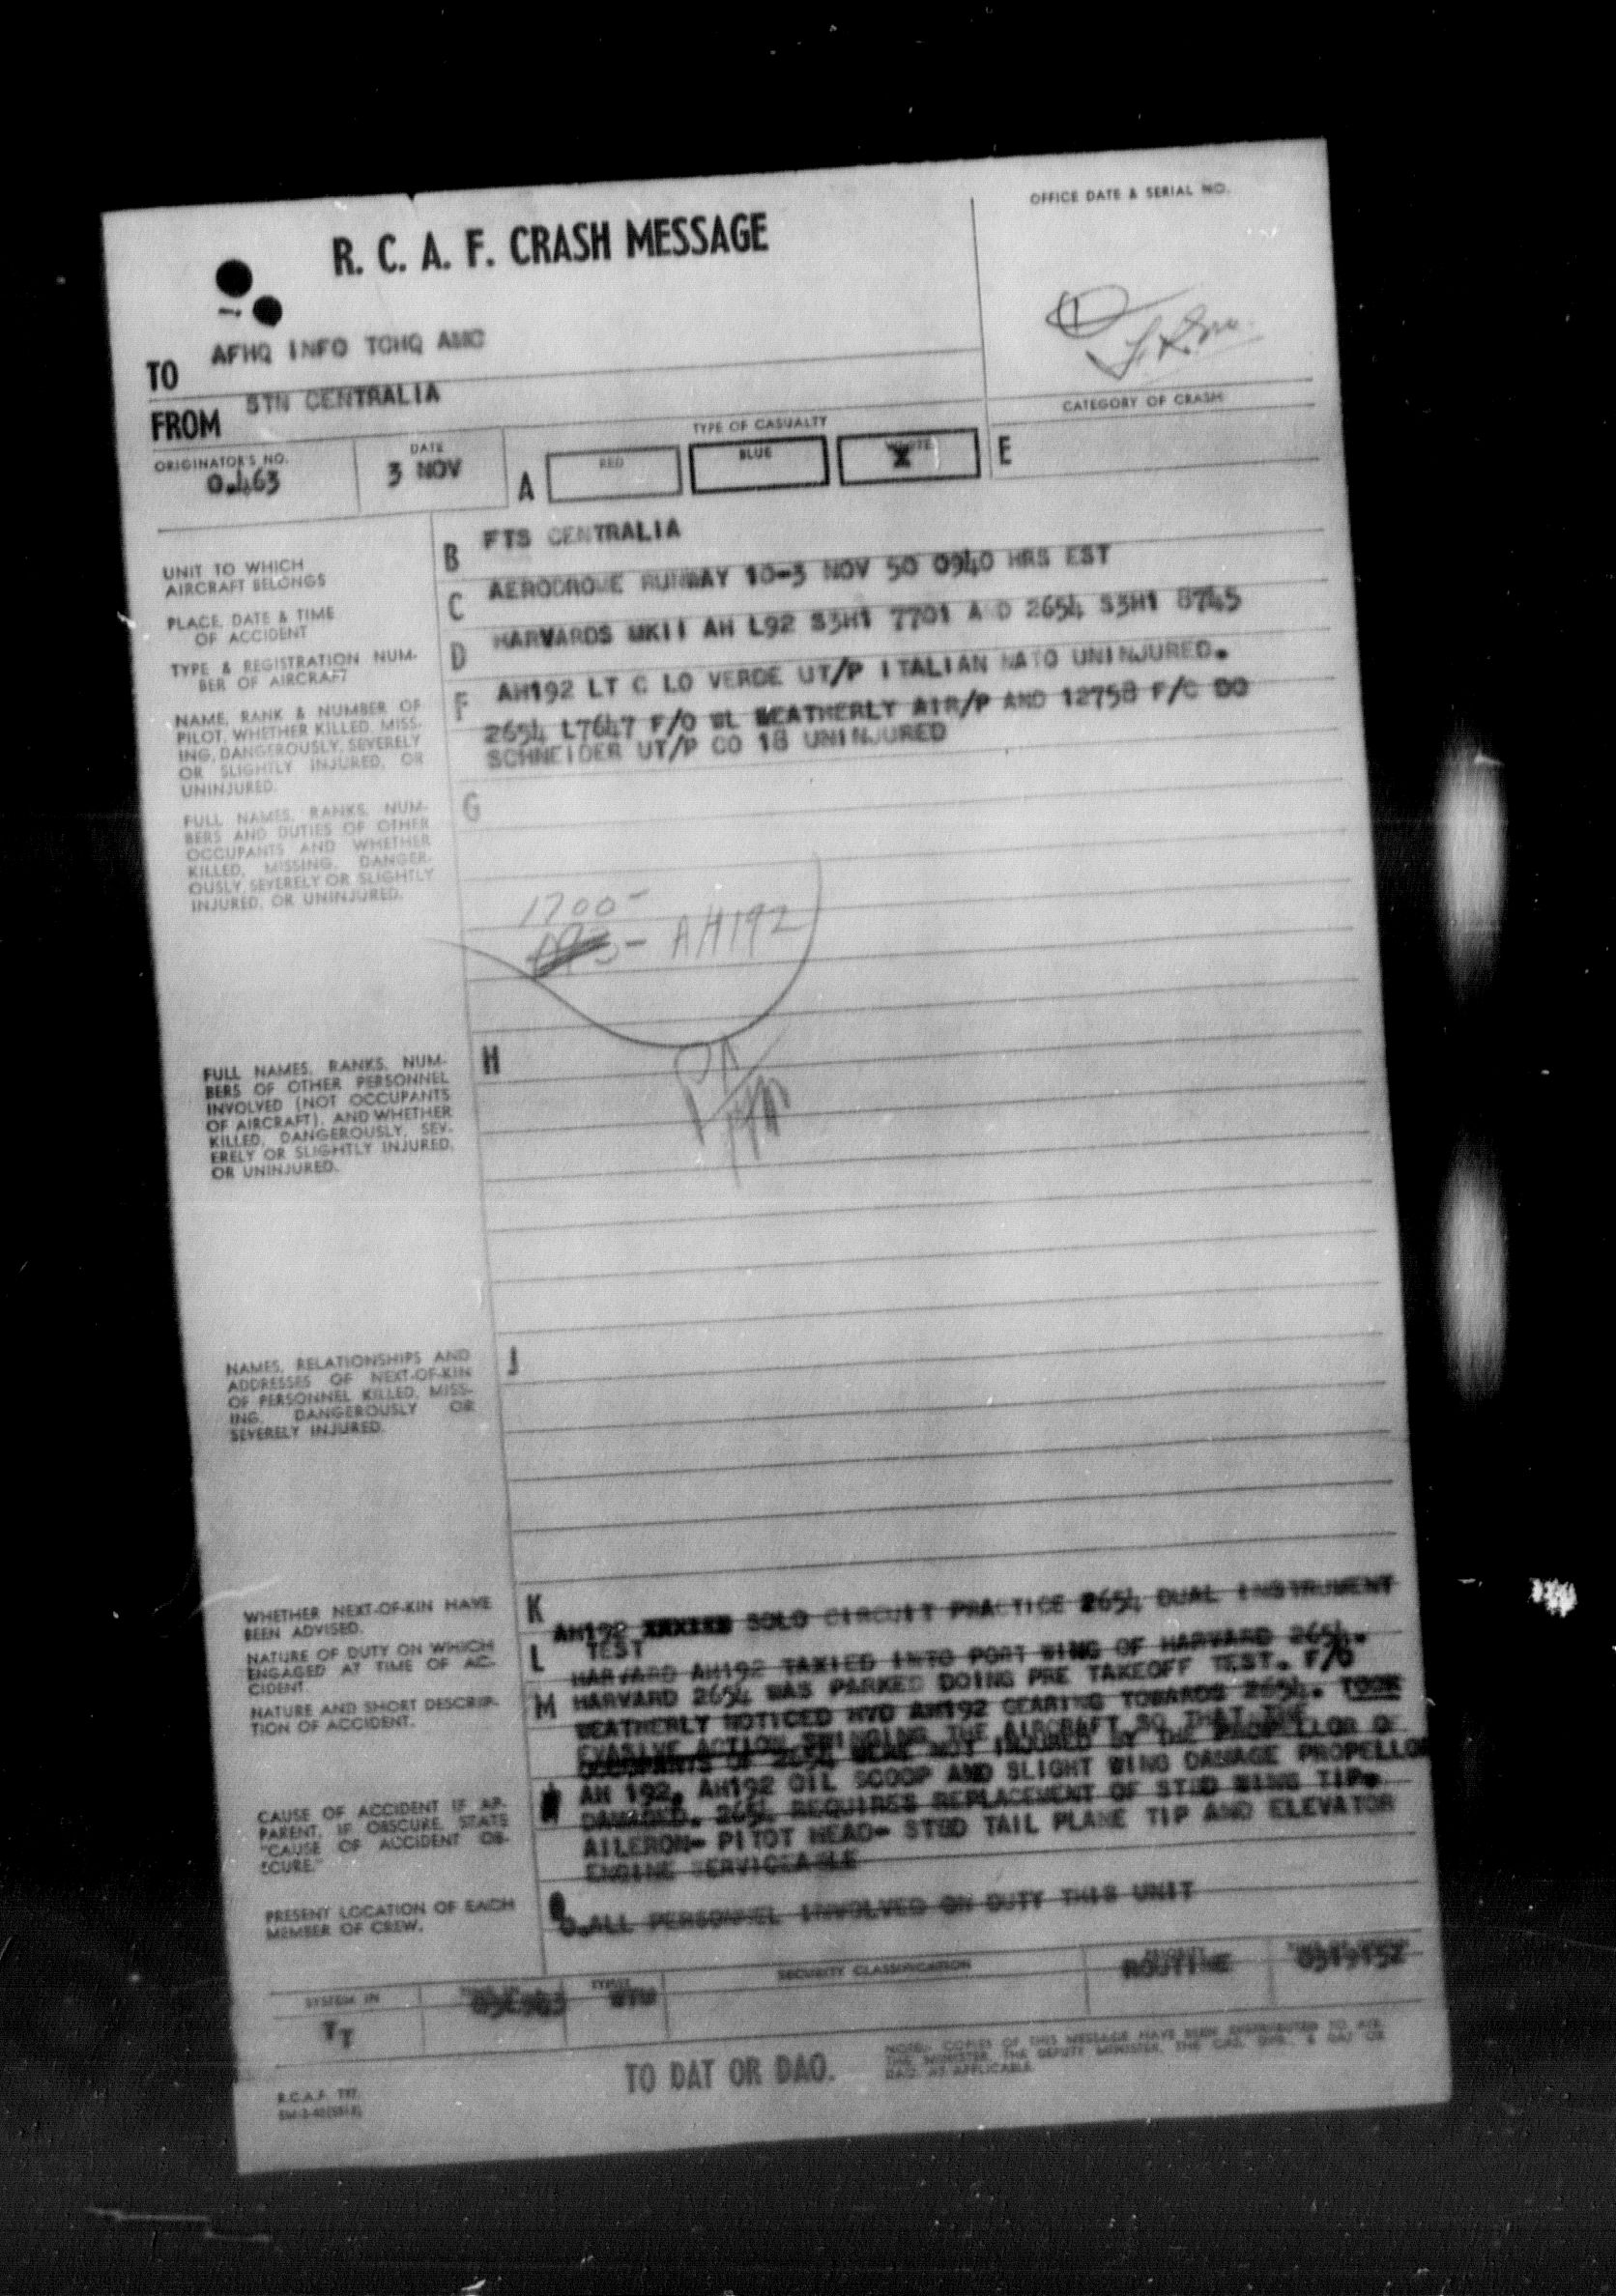 OFFICE DATE & SERIAL NO.
R. C. A. F. CRASH MESSAGE
TO AFHQ INFO TCHQ AMC
FROM STN CENTRALIA
CATEGORY OF CRASH
TYPE OF CASUALTY
ORIGINATOR'S NO.
DATE
A RED BLUE X E
3 NOV
UNIT TO WHICH
AIRCRAFT BELONGS
B FTS CENTRALIA
PLACE, DATE & TIME
OF ACCIDENT
C AERODROME RUNWAY 10-3 NOV 50 0940 HRS EST
TYPE & REGISTRATION NUM-
BER OF AIRCRAFT
D HARVARDS MKII AH L92 S3H1 7701 A D 2654 S3H1 8745
NAME, RANK & NUMBER OF
PILOT, WHETHER KILLED, MISS-
ING, DANGEROUSLY, SEVERELY
OR SLIGHTLY INJURED, OR
UNINJURED.
F AH192 LT C LO VERDE UT/P ITALIAN NATO UNINJURED.
2654 L7647 F/O WL WEATHERLY AIR/P AND 12758 F/C DO
SCHNEIDER UT/P CO 18 UNINJURED
FULL NAMES, RANKS, NUM-
BERS AND DUTIES OF OTHER
OCCUPANTS AND WHETHER
KILLED, MISSING, DANGER-
OUSLY, SEVERELY OR SLIGHTLY
INJURED, OR UNINJURED.
G
1700-
AH192
FULL NAMES, RANKS, NUM-
BERS OF OTHER PERSONNEL
INVOLVED (NOT OCCUPANTS
OF AIRCRAFT), AND WHETHER
KILLED, DANGEROUSLY, SEV-
ERELY OR SLIGHTLY INJURED,
OR UNINJURED.
H
NAMES, RELATIONSHIPS AND
ADDRESSES OF NEXT-OF-KIN
OF PERSONNEL KILLED, MISS-
ING, DANGEROUSLY OR
SEVERELY INJURED.
J
WHETHER NEXT-OF-KIN HAVE
BEEN ADVISED.
K
AH192 SOLO CIRCUIT PRACTICE 2654 DUAL INSTRUMENT
NATURE OF DUTY ON WHICH
ENGAGED AT TIME OF AC-
CIDENT.
L TEST
HARVARD AH192 TAXIED INTO PORT WING OF HARVARD 2654.
NATURE AND SHORT DESCRIP-
TION OF ACCIDENT.
M HARVARD 2654 WAS PARKED DOING PRE TAKEOFF TEST. F/O
WEATHERLY NOTICED HVD AH192 GEARING TOWARDS 2654. TOOK
EVASIVE ACTION SWINGING THE AIRCRAFT SO THAT THE
OCCUPANTS OF 2654 WERE NOT INJURED BY THE PROPELLOR O
AH 192. AH192 OIL SCOOP AND SLIGHT WING DAMAGE PROPELLOR
DAMAGED. 2654 REQUIRES REPLACEMENT OF STBD WING TIP.
AILERON- PITOT HEAD- STBD TAIL PLANE TIP AND ELEVATOR
ENGINE SERVICEABLE
CAUSE OF ACCIDENT IF AP-
PARENT, IF OBSCURE, STATE
"CAUSE OF ACCIDENT OB-
SCURE."
PRESENT LOCATION OF EACH
MEMBER OF CREW.
O.ALL PERSONNEL INVOLVED ON DUTY THIS UNIT
SYSTEM IN
TYPIST
SECURITY CLASSIFICATION
ROUTINE
TT
TO DAT OR DAO.
NOTE: COPIES OF THIS MESSAGE HAVE BEEN DISTRIBUTED TO AIR
THE MINISTER, THE DEPUTY MINISTER, THE CAS, & DAT OR
DAO AS APPLICABLE